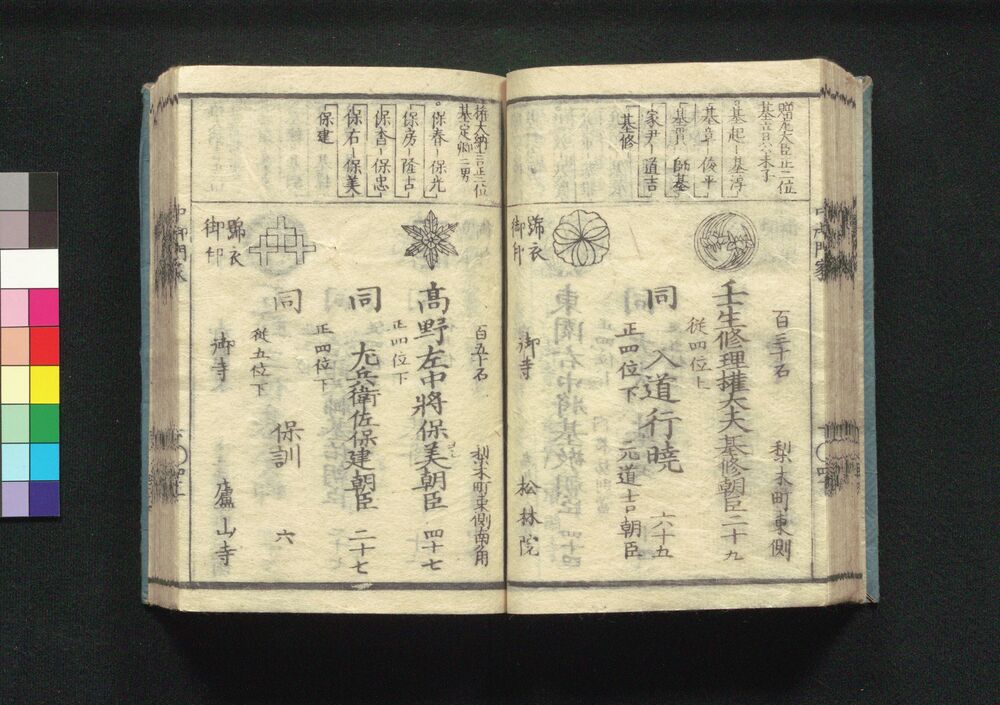 贈左大臣正二位
基音公末子
基起-基淳
基章-俊平
基貫-師基
家尹-道吉
基修
百三十石
梨木町東側
壬生修理権大夫基修朝臣 二十九
従四位上
同 入道行暁 六十五
正四位下 元道吉朝臣
御寺 松林院
蹄衣
御印
権大納言正二位
基定卿二男
保春-保光
保房-隆古
保香-保忠
保右-保美
保建
百五十石
梨木町東側南角
高野左中将保美朝臣 四十七
正四位下
同 左兵衛佐保建朝臣 二十七
正四位下
同 保訓 六
従五位下
御寺 廬山寺
蹄衣
御印
中御門家